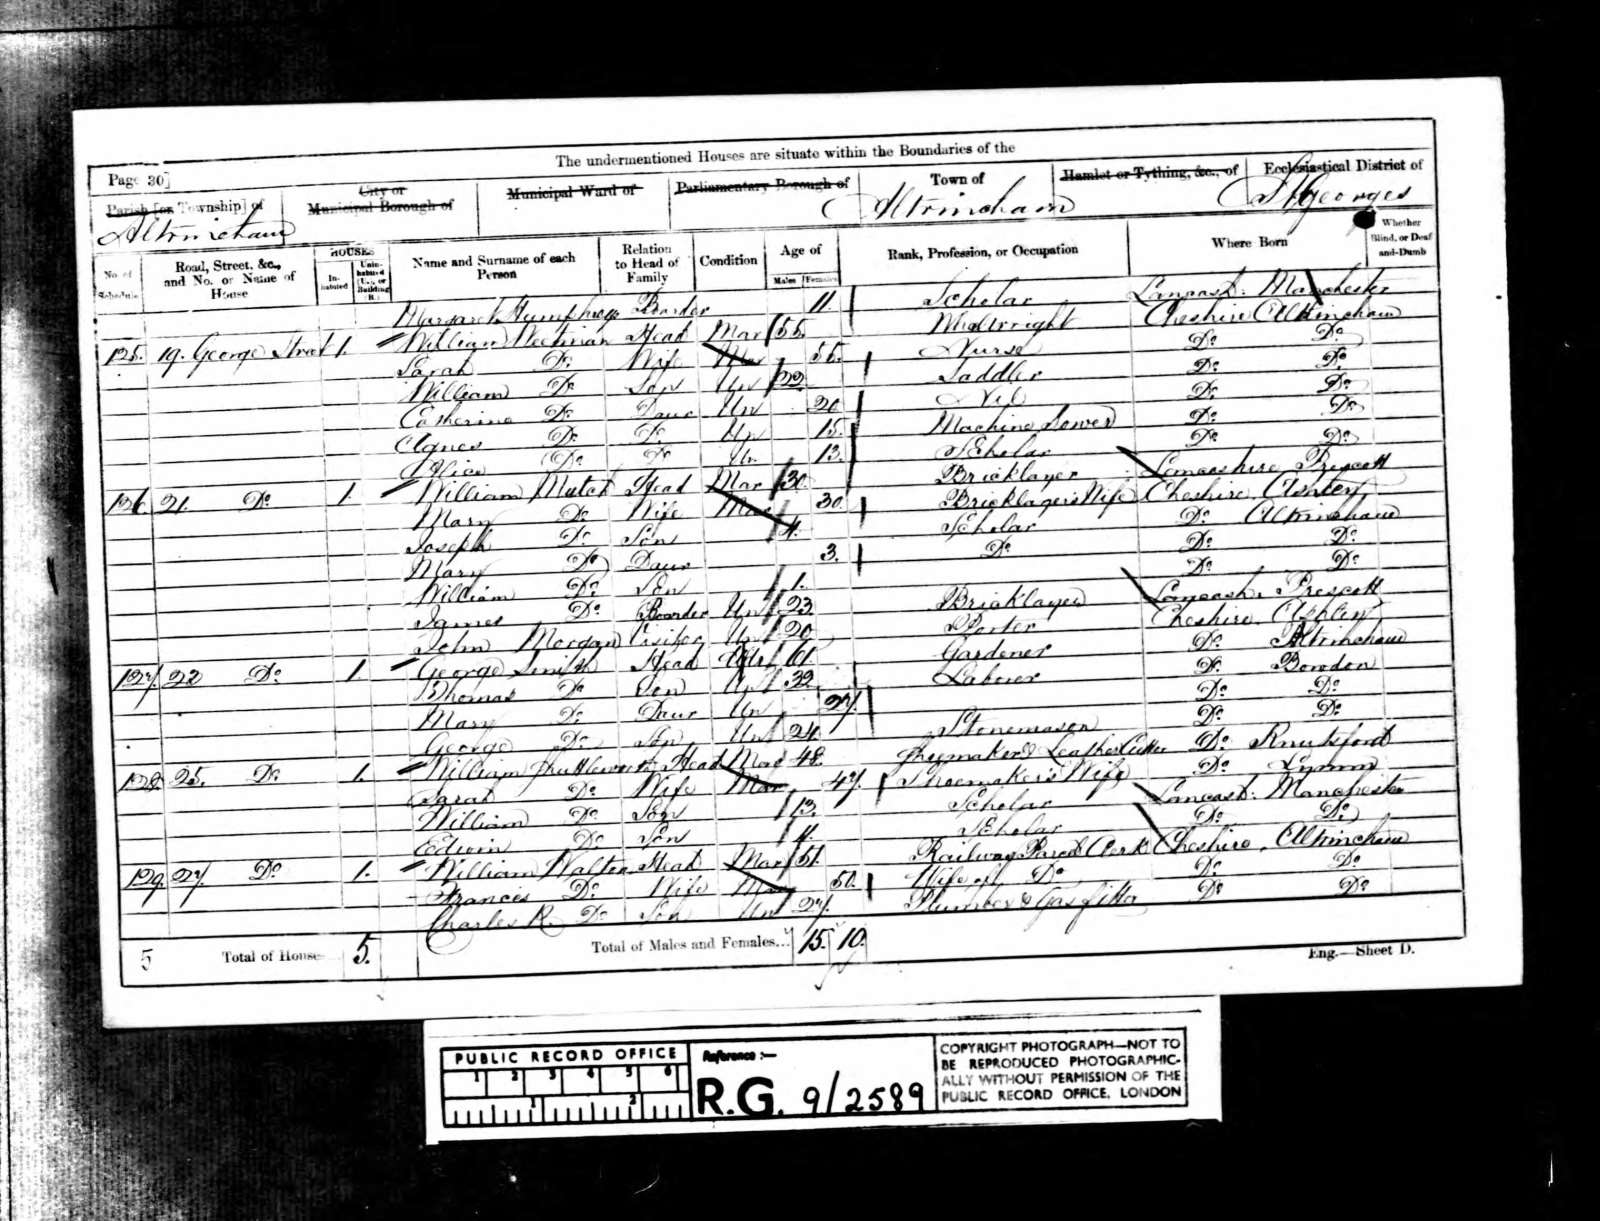 The undermentioned Houses are situate within the Boundaries of the
Page 30]
Parish [or Township] of
Altrincham
City or
Municipal Borough of
Municipal Ward of
Parliamentary Borough of
Town of
Altrincham
Hamlet or Tything, &c., of
Ecclesiastical District of
St Georges
No. of Schedule
Road, Street, &c., and No. or Name of House
HOUSES
In-habited
Unin-habited (U.), or Building (B.)
Name and Surname of each Person
Relation to Head of Family
Condition
Age of
Males
Females
Rank, Profession, or Occupation
Where Born
Whether Blind, or Deaf-and-Dumb
Margaret Humphreys Boarder 11. Scholar Lancash: Manchester
125. 19. George Street 1. William Head Mar 55. Wheelwright Cheshire Altrincham
Sarah Do Wife Mar 56. Nurse Do Do
William Do Son Un 22 Saddler Do Do
Catherine Do Daur Un 20 Nil Do Do
Agnes Do Do Un 15. Machine Sewer Do Do
Alice Do Do Un 13. Scholar Do Do
126. 21. Do 1. William Mutch Head Mar 30 Bricklayer Lancashire Prescott
Mary Do Wife Mar 30. Bricklayer's Wife Cheshire Ashley
Joseph Do Son 4. Scholar Do Altrincham
Mary Do Daur 3. Do Do Do
William Do Son 1. Do Do
James Do Boarder Un 23 Bricklayer Lancash: Prescott
John Morgan Visitor Un 20 Porter Cheshire Ashley
127. 22 Do 1. George Smith Head 61 Gardener Do Altrincham
Thomas Do Son Un 32 Laborer Do Bowdon
Mary Do Daur Un 27. Do Do
George Do Son Un 24 Stonemason Do Do
128. 25. Do 1. William Shuttleworth Head Mar 48. Shoemaker & Leather Cutter Do Knutsford
Sarah Do Wife Mar 47. Shoemaker's Wife Do Lymm
William Do Son 13. Scholar Lancash: Manchester
Edwin Do Son 4. Scholar Do Do
129. 27. Do 1. William Walton Head Mar 51. Railway Parcel Clerk Cheshire. Altrincham
Frances Do Wife Mar 50. Wife of Do Do Do
Charles R. Do Son Un 27. Plumber & Gasfitter Do Do
5 Total of Houses... 5. Total of Males and Females... 15. 10.
Eng.—Sheet D.
PUBLIC RECORD OFFICE
1 2 3 4 5 6
1 2
Reference:—
R.G. 9/2589
COPYRIGHT PHOTOGRAPH—NOT TO
BE REPRODUCED PHOTOGRAPHIC-
ALLY WITHOUT PERMISSION OF THE
PUBLIC RECORD OFFICE, LONDON